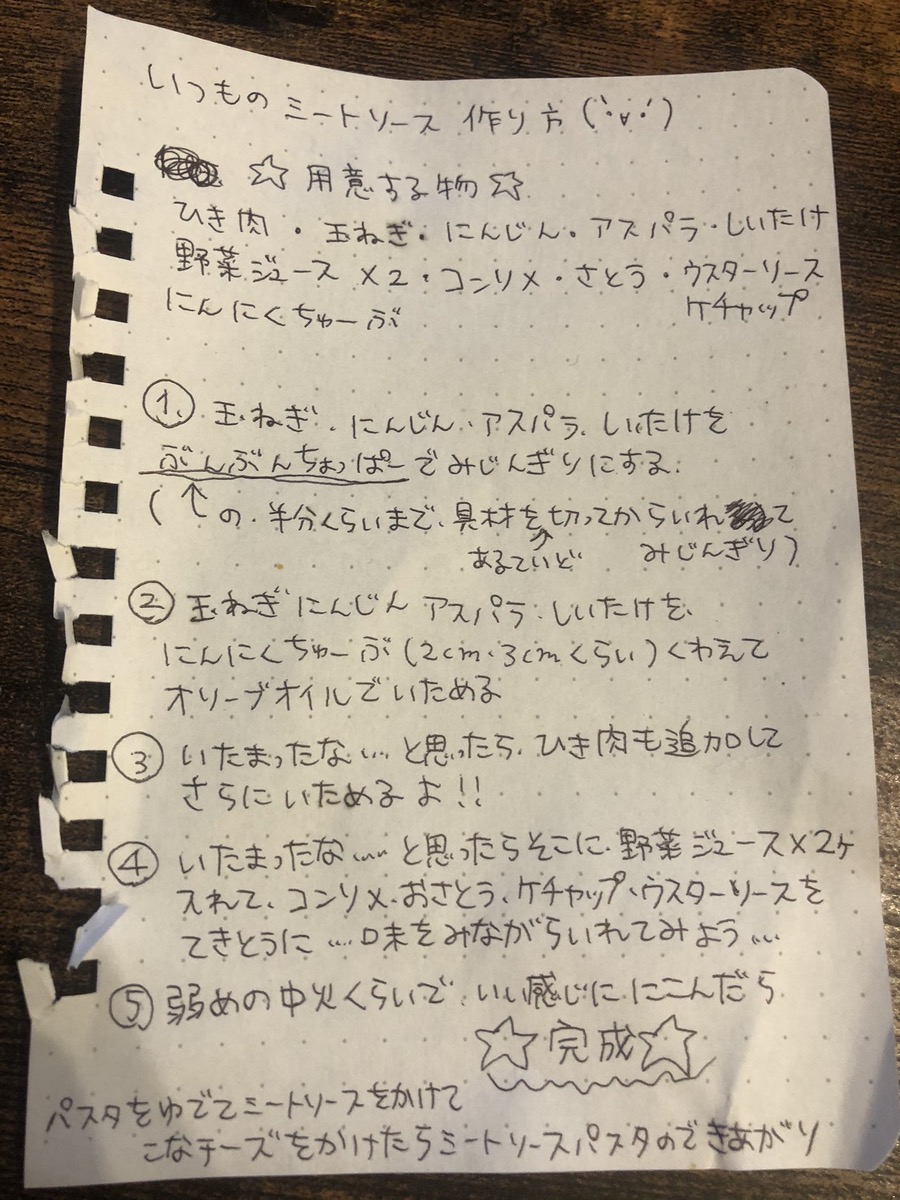 いつものミートソース作り方(`･v･´)
☆用意する物☆
ひき肉・玉ねぎ・にんじん・アスパラ・しいたけ
野菜ジュース×2・コンソメ・さとう・ウスターソース
にんにくちゅーぶ ケチャップ
① 玉ねぎ、にんじん、アスパラ、しいたけを
ぶんぶんちょっぱーでみじんぎりにする。
(↑の、半分くらいまで、具材を切ってからいれて
あるていど みじんぎり)
② 玉ねぎ にんじん アスパラ、しいたけを、
にんにくちゅーぶ(2cm、3cmくらい)くわえて
オリーブオイルでいためる
③ いたまったな…と思ったら、ひき肉も追加して
さらにいためるよ!!
④ いたまったな…と思ったらそこに、野菜ジュース×2ケ
入れて、コンソメ、おさとう、ケチャップ、ウスターソースを
てきとうに…味をみながらいれてみよう…
⑤ 弱めの中火くらいで、いい感じににこんだら
☆完成☆
パスタをゆでてミートソースをかけて
こなチーズをかけたらミートソースパスタのできあがり